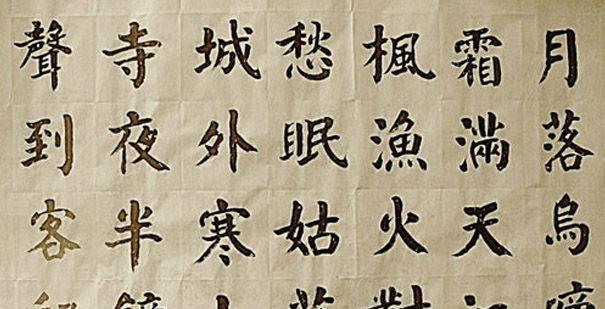 月落烏啼
霜滿天
楓漁火對
愁眠姑
城外寒
寺夜半
聲到客